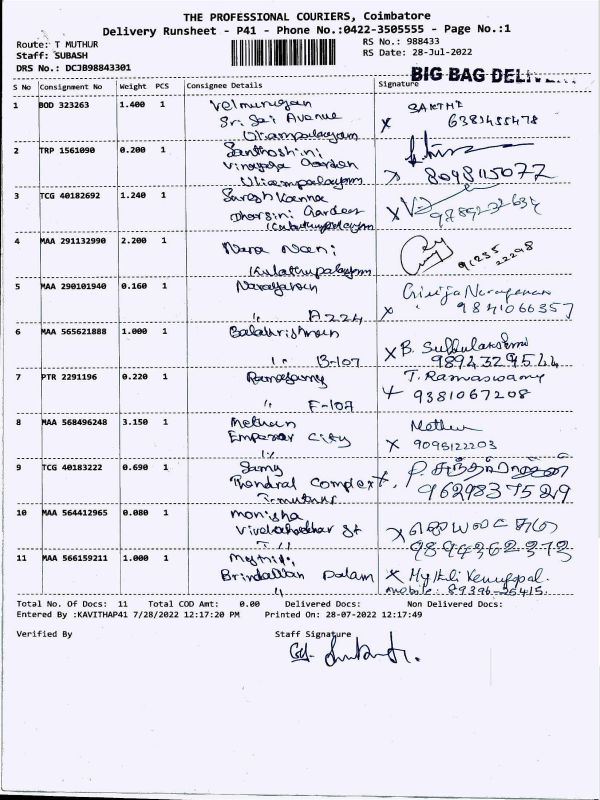 THE PROFESSIONAL COURIERS, Coimbatore
Delivery Runsheet - P41 - Phone No.:0422-3505555 - Page No.:1
Route: T MUTHUR
RS No.: 988433
Staff: SUBASH
RS Date: 28-Jul-2022
DRS No.: DCJB98843301
BIG BAG
S No Consignment No Weight PCS Consignee Details Signature
1 BOD 323263 1.400 1 Velmurugan
Sri Sai Avenue
SAKTHI
6381455478
2 TRP 1561090 0.200 1 Santhoshini
Vinayaga Garden
8098115077
3 TCG 40182692 1.240 1 Suresh Kanna
Dharsini Garden
Kulathupalayam
4 MAA 291132990 2.200 1 Nara Nani
Kulathupalayam
91235
22298
5 MAA 290101940 0.160 1 Narayanan
" A224
Girija Narayanan
9841066357
6 MAA 565621888 1.000 1 Balakrishnan
" B-107
B. Subbulakshmi
7 PTR 2291196 0.220 1 Ramasamy
" F-107
T. Ramaswamy
9381067208
8 MAA 568496248 3.150 1 Methun
Emperor City
"
Methun
9095122203
9 TCG 40183222 0.690 1 Samy
Thendral Complext,
T.muthur
9629837529
10 MAA 564412965 0.080 1 monisha
St
9894362372
11 MAA 566159211 1.000 1
Palam
Mythili Venugopal.
mobile: 89396-25415.
Total No. Of Docs: 11 Total COD Amt: 0.00 Delivered Docs: Non Delivered Docs:
Entered By :KAVITHAP41 7/28/2022 12:17:20 PM Printed On: 28-07-2022 12:17:49
Verified By Staff Signature